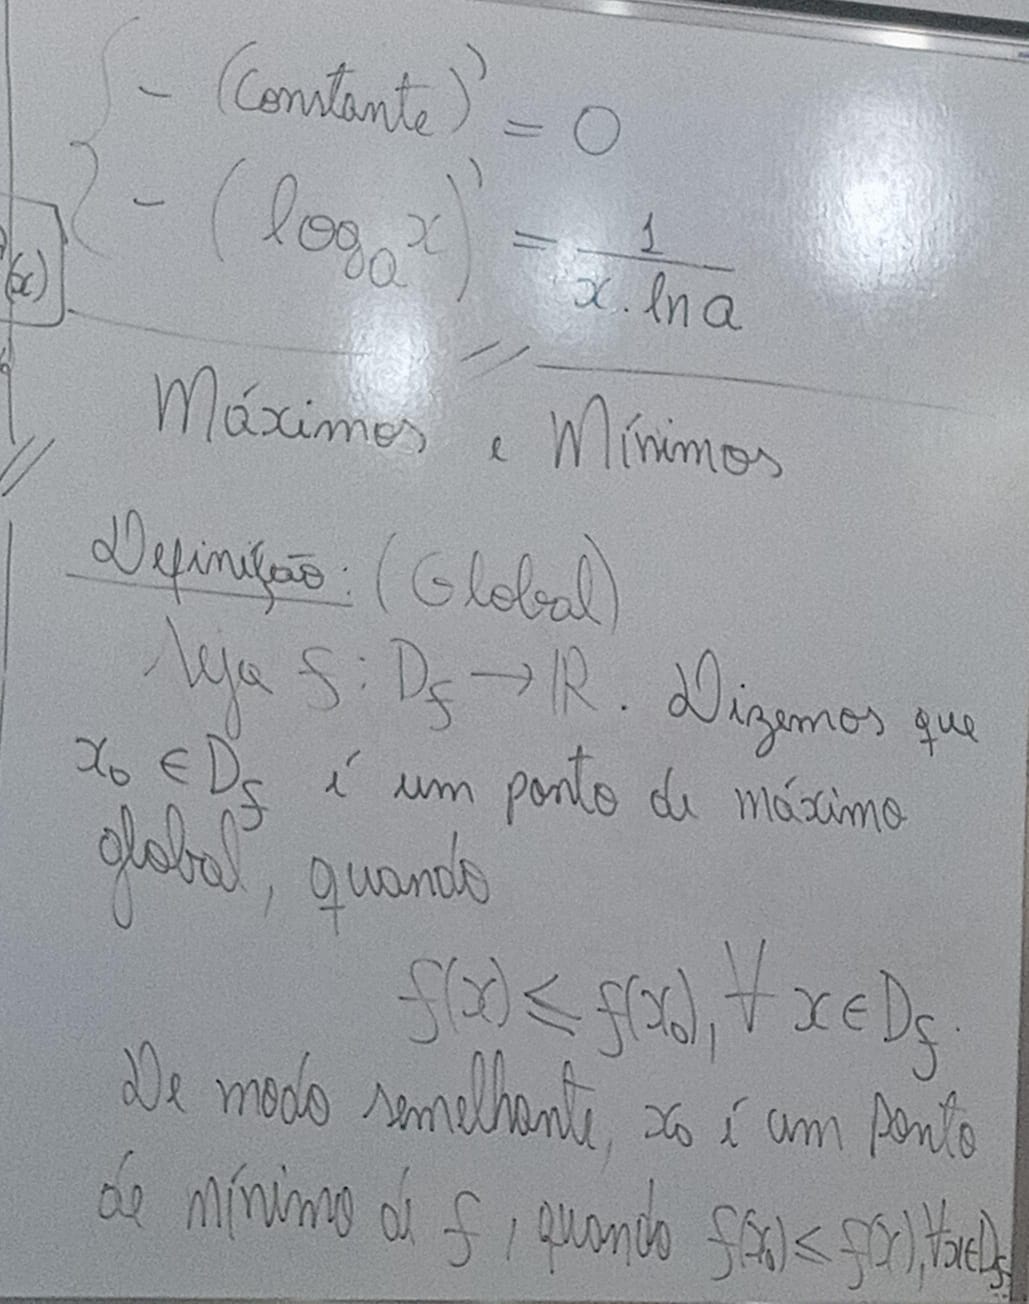 - (Constante)' = 0
- (log_a x)' = 1/(x . ln a)
(x)
Máximos e Mínimos
Definição: (Global)
Seja f : D_f → ℝ. Dizemos que
x₀ ∈ D_f é um ponto de máximo
global, quando
f(x) ≤ f(x₀), ∀ x ∈ D_f.
De modo semelhante, x₀ é um ponto
de mínimo de f, quando f(x₀) ≤ f(x), ∀x∈D_f.